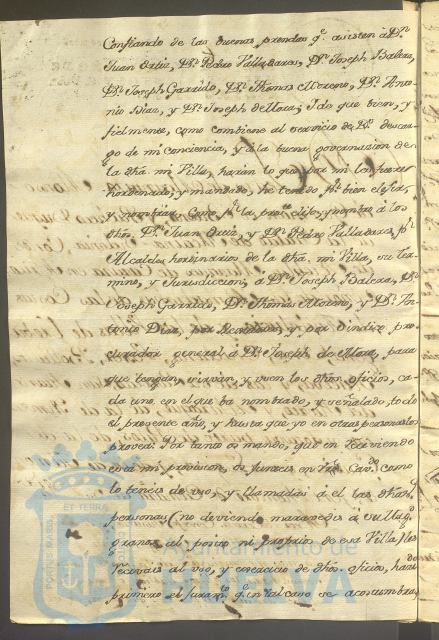 Confiando de las buenas prendas q.e asisten à D.n
Juan Ortiz, D.n Pedro Valladares, D.n Joseph Balera,
D.n Joseph Garrido, D.n Thomas Moreno, D.n Anto-
nio Diaz, y D.n Joseph de Mora; I de que bien, y
fielmente, como combiene al servicio de D.s descar-
go de mi conciencia, y à la buena governacion de
la dha. mi Villa, harán lo que por mi les fuere
hordenado, y mandado, he tenido p.r bien elejir,
y nombrar, como p.r la pres.te elijo, y nombro à los
dhos. D.n Juan Ortiz, y D.n Pedro Valladares, p.r
Alcaldes hordinarios de la dha. mi Villa, su ter-
mino, y Jurisdiccion; à D.n Joseph Balera, D.n
Joseph Garrido, D.n Thomas Moreno, y D.n An-
tonio Diaz, por Rexidores, y por Sindico pro-
curador general à D.n Joseph de Mora, para
que tengan, sirvan, y usen los dhos. oficios, ca-
da uno en el que ba nombrado, y señalado, todo
el presente año, y hasta que yo en otras personas los
provea: Por tanto os mando, que en reciviendo
esta mi provision, os junteis en Cav.do como
lo teneis de uso, y llamadas à el las dhas.
personas, (no deviendo
al posito ni propios de esa Villa) los
recivais al uso, y exercicio de dhos. oficios, haci.do
primero el juram.to q.e en tal caso se acostumbra,
PORTUS MARIS
ET TERRAE
Ayuntamiento de
HUELVA